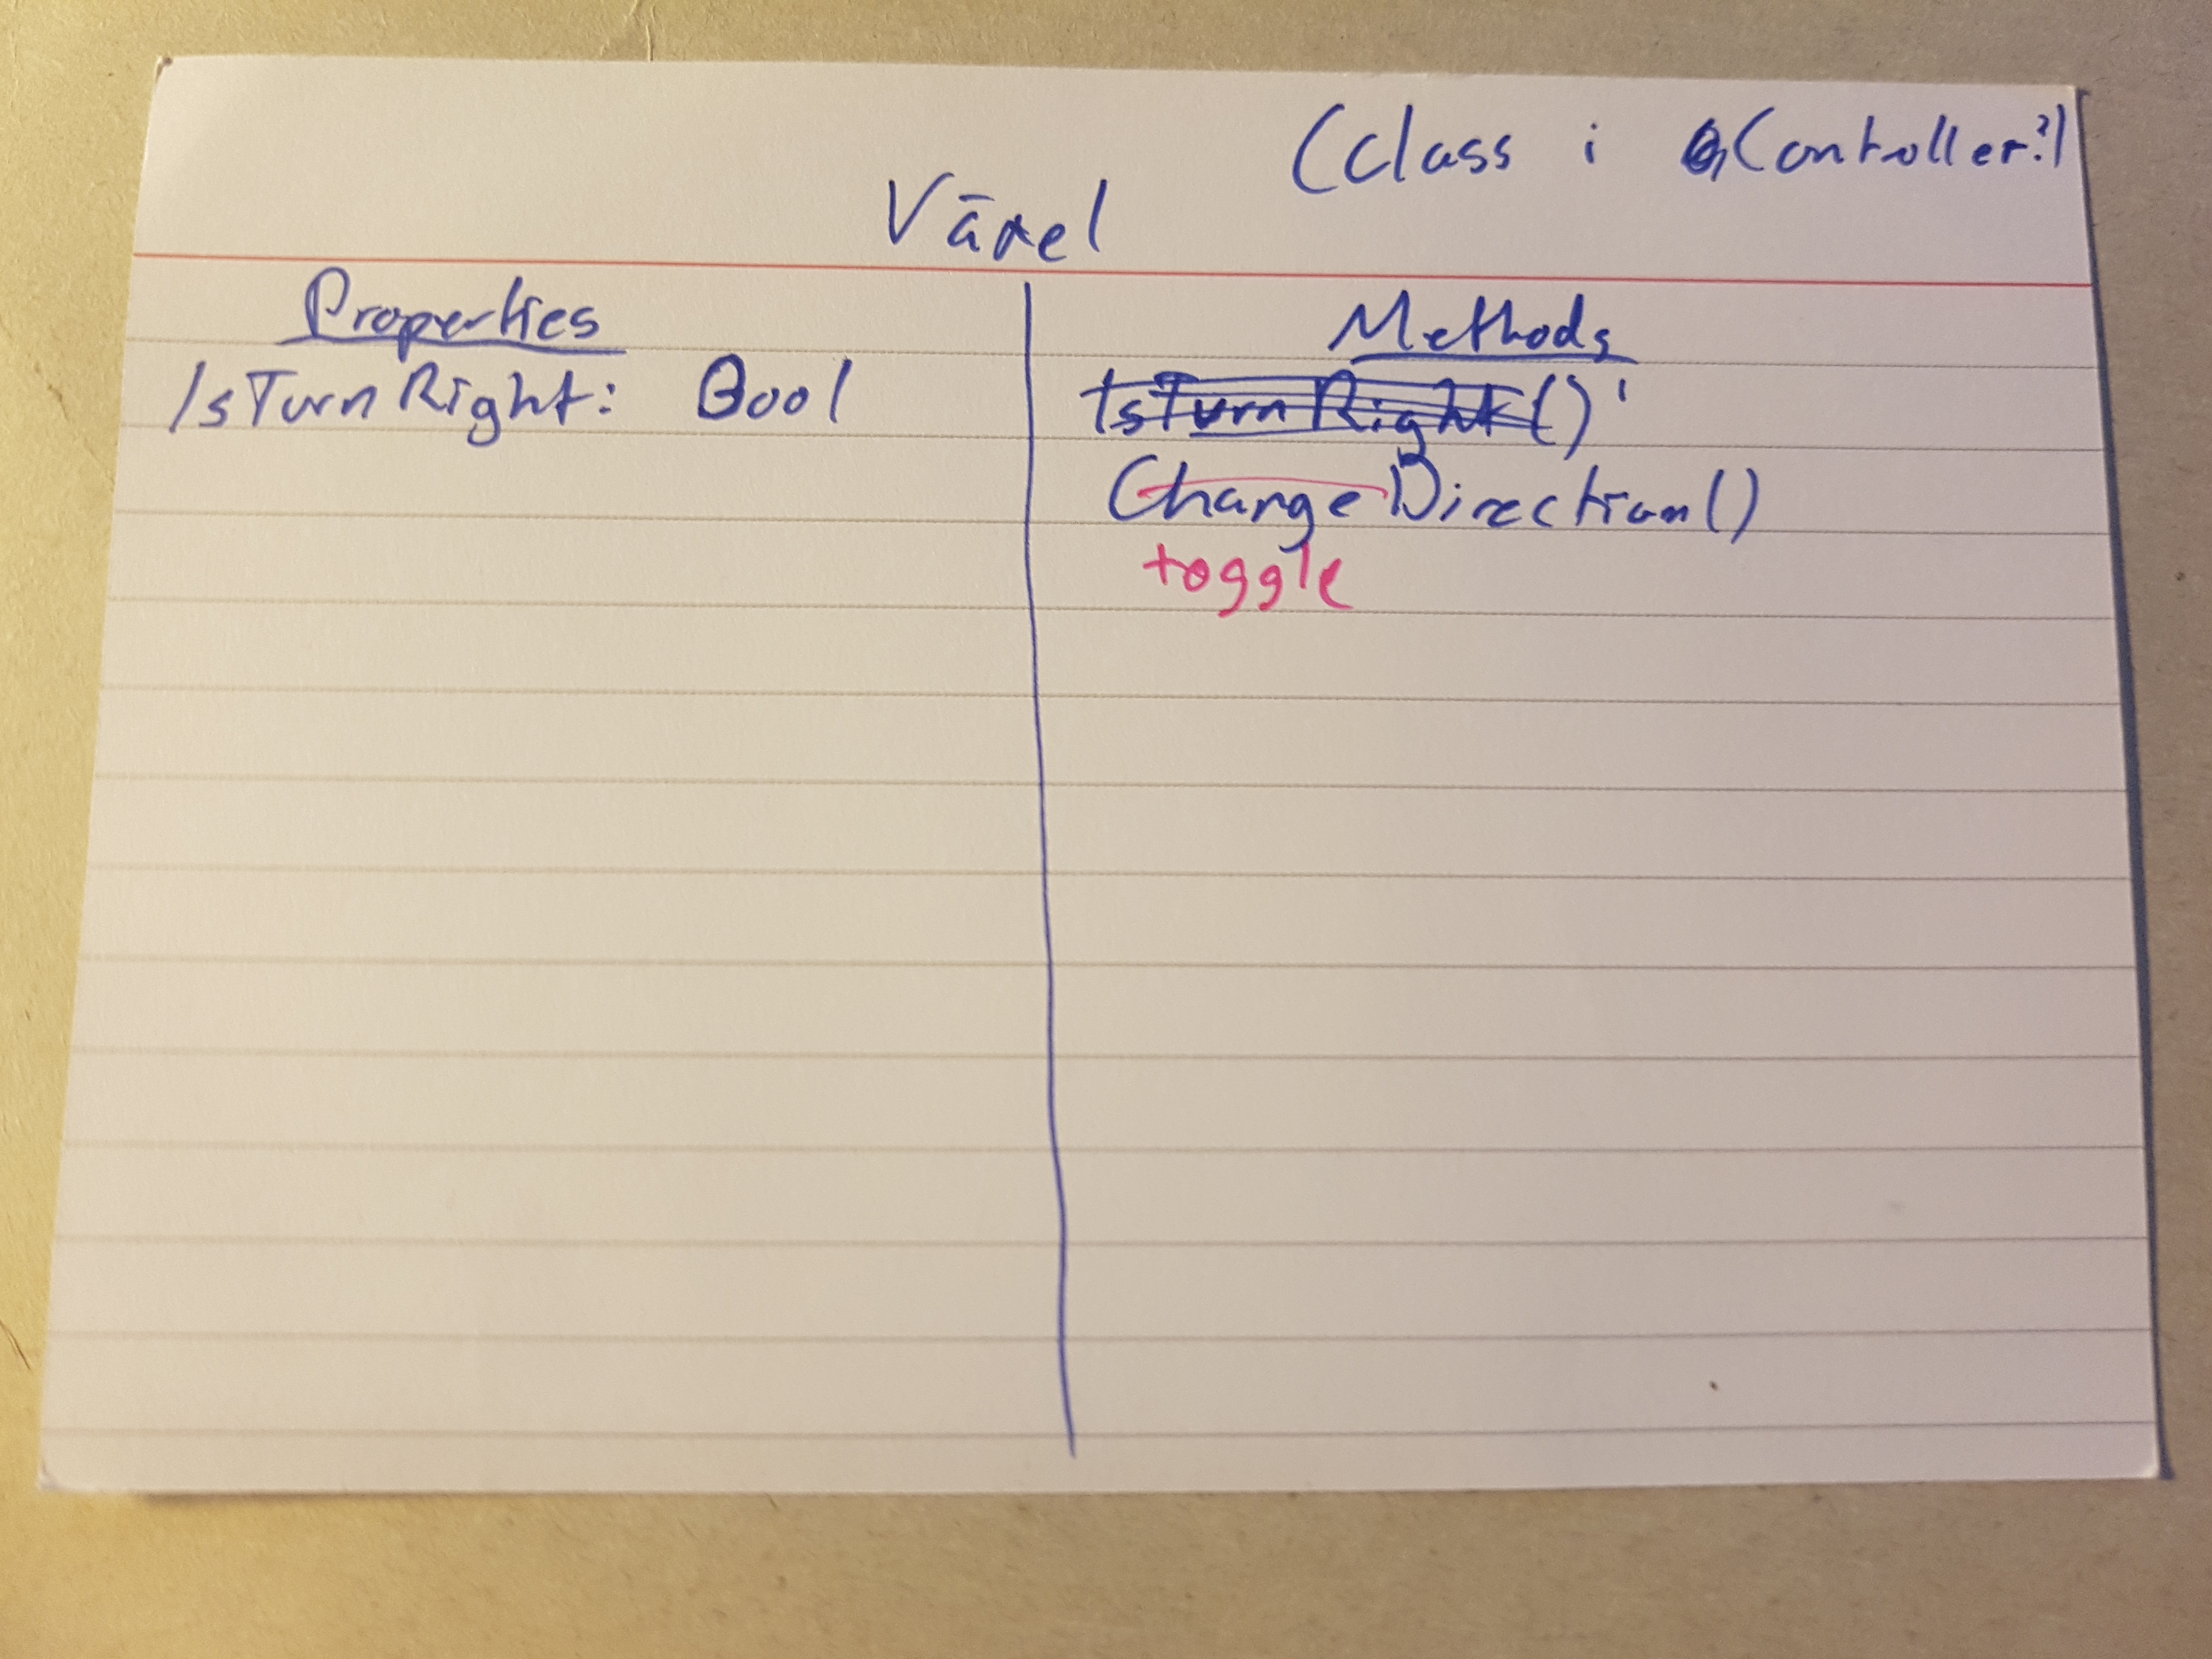 (Class i Controller?)
Växel
Properties
IsTurnRight: Bool
Methods
IsTurnRight()
ChangeDirection()
toggle